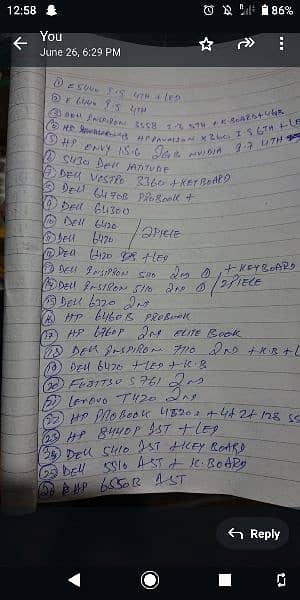 12:58
86%
You
June 26, 6:29 PM
① E5440 I.5 4TH + LED
② E6440 I.5 4TH
③ Dell INSPIRON 3558 I.3 5TH + K.BOARD + 4GB
④ HP PAVILION X360 I.5 6TH + LE
⑤ HP ENVY 15.6 2GB NVIDIA I.7 4TH
⑥ 5430 Dell LATITUDE
⑦ Dell VOSTRO 3360 + KEYBOARD
⑧ Dell 6470B PROBOOK +
⑨ Dell 6430U
⑩ Dell 6420
⑪ Dell 6420 / 2PIECE
⑫ Dell 6420 + LED
⑬ Dell INSPIRON 5110 2ND + KEYBOARD
⑭ Dell INSPIRON 5110 2ND / 2PIECE
⑮ Dell 6320 2ND
⑯ HP 6460B PROBOOK
⑰ HP 6760P 2ND ELITE BOOK
⑱ Dell INSPIRON 7110 2ND + K.B + L
⑲ Dell 6420 + LED + K.B
⑳ FUJITSU S761 2ND
㉑ Lenovo T420 2ND
㉒ HP PROBOOK 4520s + 4+2+128 SS
㉓ HP 8440P 1ST + LED
㉔ Dell 5410 1ST + KEY BOARD
㉕ Dell 5510 1ST + K.BOARD
㉖ HP 6550B 1ST
Reply